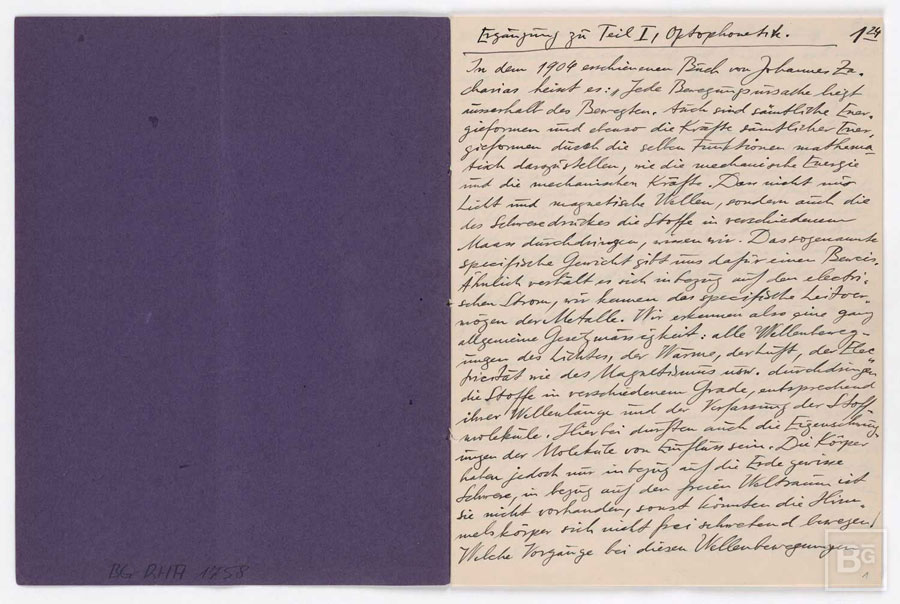 Ergänzung zu Teil I, Optophonetik.
1 24
In dem 1904 erschienenen Buch von Johannes Za-
charias heisst es: „Jede Bewegungsursache liegt
ausserhalb des Bewegten. Auch sind sämtliche Ener-
gieformen und ebenso die Kräfte sämtlicher Ener-
gieformen durch die selben Funktionen mathema-
tisch darzustellen, wie die mechanische Energie
und die mechanischen Kräfte. Dass nicht nur
Licht und magnetische Wellen, sondern auch die
des Schweredruckes die Stoffe in verschiedenem
Maass durchdringen, wissen wir. Das sogenannte
specifische Gewicht gibt uns dafür einen Beweis.
Ähnlich verhält es sich in bezug auf den electri-
schen Strom, wir kennen das specifische Leitver-
mögen der Metalle. Wir erkennen also eine ganz
allgemeine Gesetzmässigkeit: alle Wellenbeweg-
ungen des Lichtes, der Wärme, der Luft, der Elec-
tricität wie des Magnetismus usw. durchdringen
die Stoffe in verschiedenem Grade, entsprechend
ihrer Wellenlänge und der Verfassung der Stoff-
moleküle. Hierbei dürften auch die Eigenschwing-
ungen der Moleküle von Einfluss sein. Die Körper
haben jedoch nur in bezug auf die Erde gewisse
Schwere, in bezug auf den freien Weltraum ist
sie nicht vorhanden, sonst könnten die Him-
melskörper sich nicht frei schwebend bewegen!
Welche Vorgänge bei diesen Wellenbewegungen
1
BG RHA 1758
BG